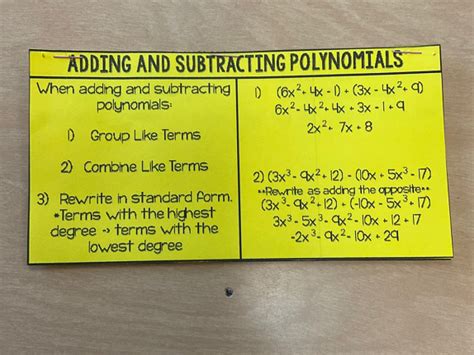 ADDING AND SUBTRACTING POLYNOMIALS
When adding and subtracting
polynomials:
1) Group Like Terms
2) Combine Like Terms
3) Rewrite in standard form.
*Terms with the highest
degree -> terms with the
lowest degree
1) (6x²+ 4x - 1) + (3x - 4x²+ 9)
6x²- 4x²+ 4x + 3x - 1 + 9
2x²+ 7x + 8
2) (3x³ - 9x²+ 12) - (10x + 5x³ - 17)
**Rewrite as adding the opposite**
(3x³ - 9x²+ 12) + (-10x - 5x³ + 17)
3x³ - 5x³ - 9x²- 10x + 12 + 17
-2x³ - 9x²- 10x + 29